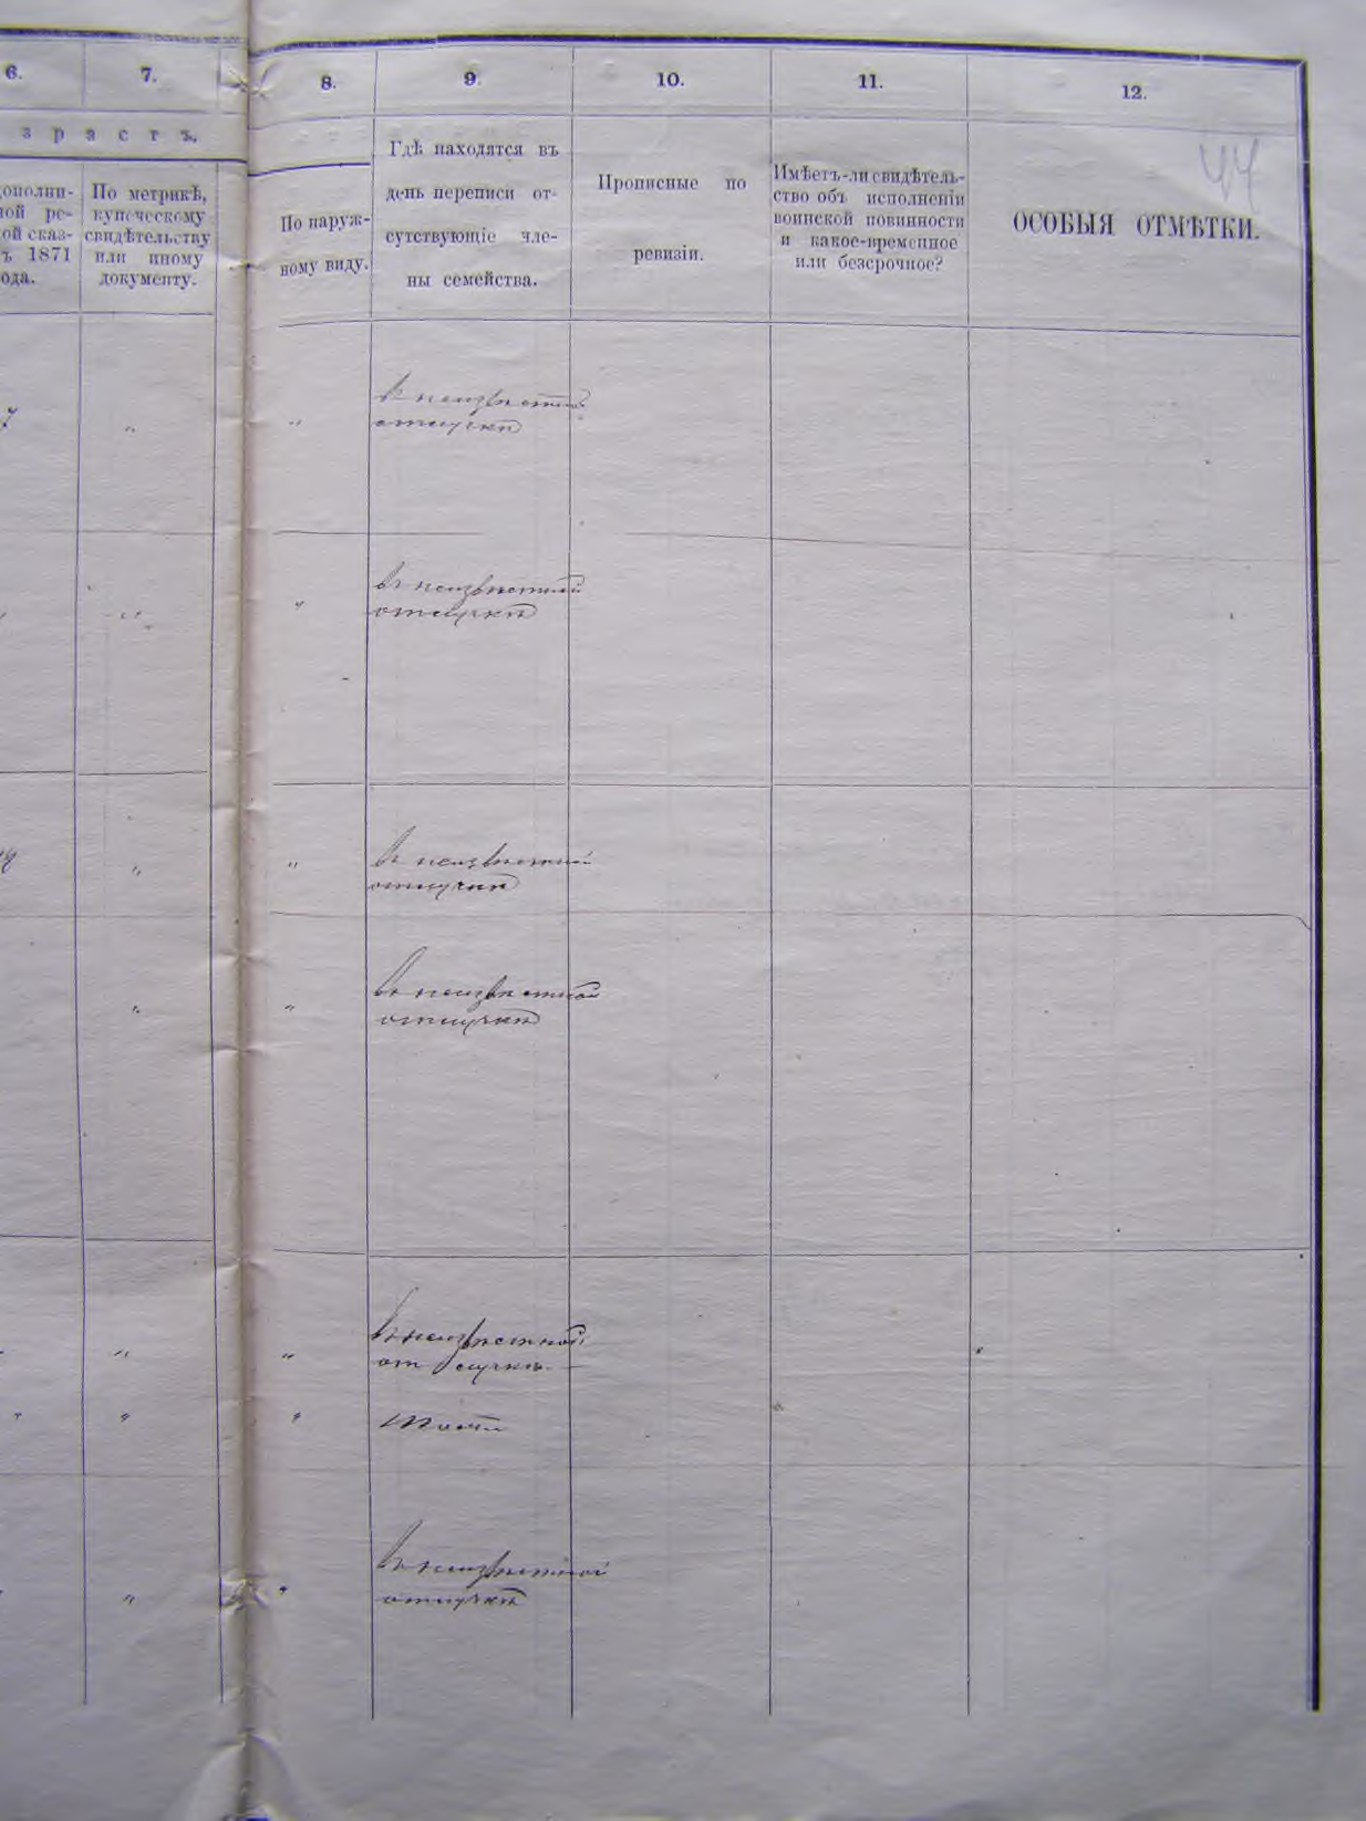 6. 7. 8. 9. 10. 11. 12.
зрастъ.
44
дополни-
ной ре-
ой сказ-
ъ 1871
ода.
По метрикѣ,
купеческому
свидѣтельству
или иному
документу.
По наруж-
ному виду.
Гдѣ находятся въ
день переписи от-
сутствующіе чле-
ны семейства.
Прописные по
ревизіи.
Имѣетъ-ли свидѣтель-
ство объ исполненіи
воинской повинности
и какое-временное
или безсрочное?
ОСОБЫЯ ОТМѢТКИ.
7 " " в неизвѣстной
отлучкѣ
" " в неизвѣстной
отлучкѣ
" " в неизвѣстной
отлучкѣ
" " в неизвѣстной
отлучкѣ
" " в неизвѣстной
отлучкѣ
" " "
" " в неизвѣстной
отлучкѣ